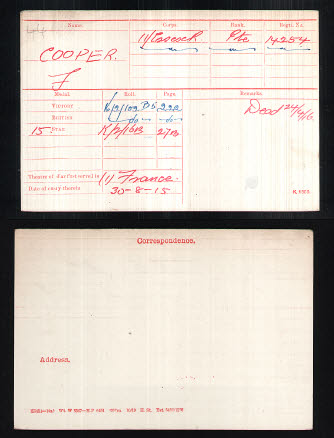 Name. Corps. Rank. Regtl. No.
COOPER. 11/Essex R. Pte 14254
F
Medal. Roll. Page. Remarks.
Victory K/2/103 B5
British do do
15 Star
Dead
Theatre of War first served in (1) France.
Date of entry therein 30-8-15
Correspondence.
Address.